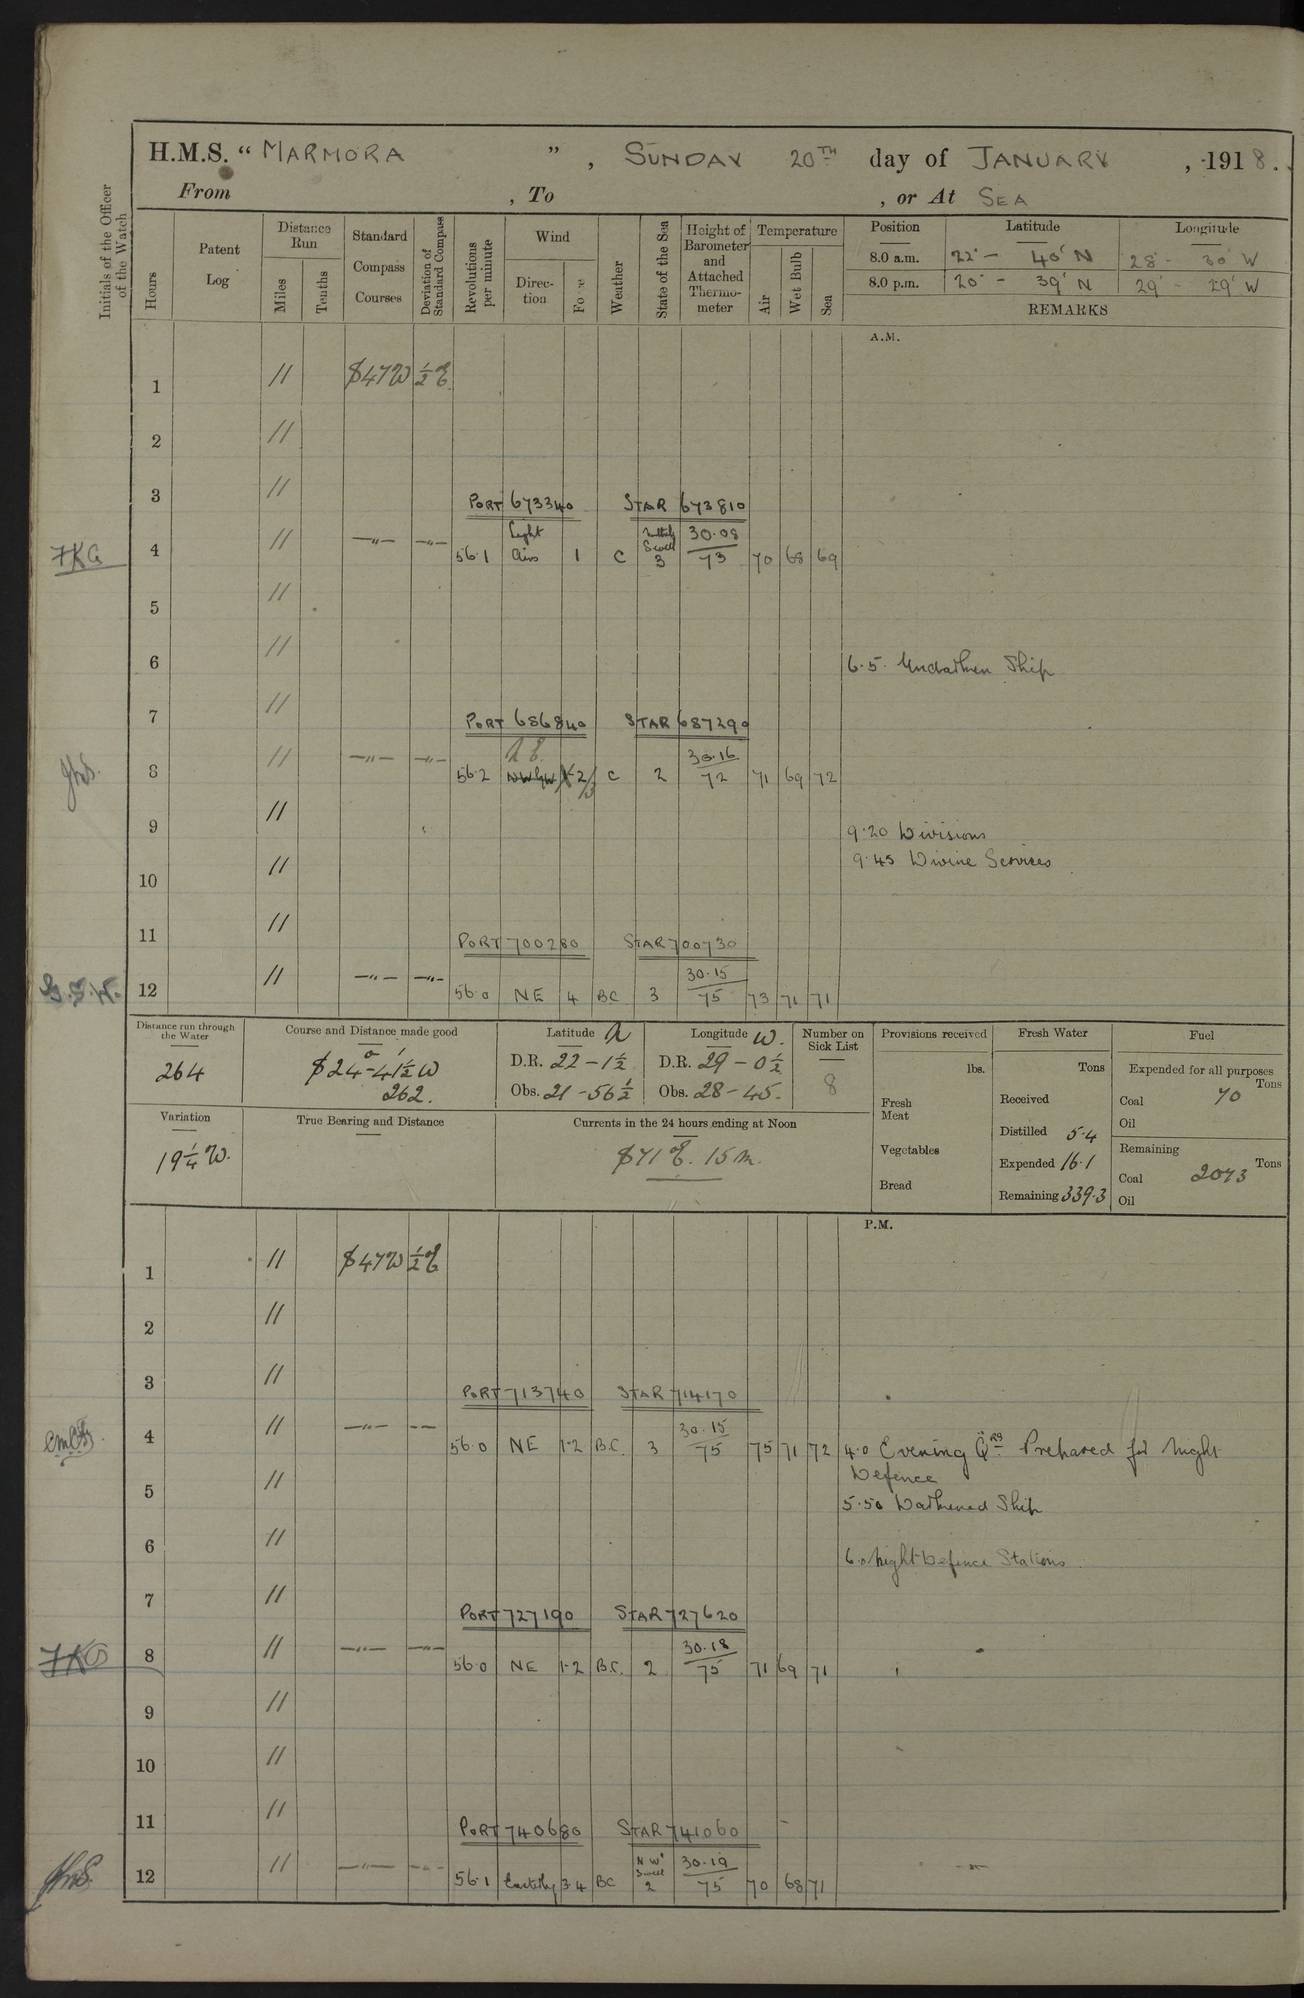 H.M.S. " MARMORA ", SUNDAY 20TH day of JANUARY, 1918.
From , To , or At SEA
Initials of the Officer of the Watch
Hours
Patent Log
Distance Run
Miles
Tenths
Standard Compass Courses
Deviation of Standard Compass
Revolutions per minute
Wind
Direction
Force
Weather
State of the Sea
Height of Barometer and Attached Thermometer
Temperature
Air
Wet Bulb
Sea
Position Latitude Longitude
8.0 a.m. 22° - 40' N 28° - 30' W
8.0 p.m. 20° - 39' N 29° - 29' W
REMARKS
A.M.
1 11 S47W ½E
2 11
3 11 PORT 673340 STAR 673810
FKG 4 11 —"— —"— 56.1 Light Airs 1 C Swell 3 30.08 / 73 70 68 69
5 11
6 11 6.5. Undarken Ship
7 11 PORT 686840 STAR 687290
8 11 —"— —"— 56.2 N E. 2/3 C 2 30.16 / 72 71 69 72
9 11 9.20 Divisions
10 11 9.45 Divine Services
11 11 PORT 700280 STAR 700730
12 11 —"— —"— 56.0 NE 4 BC 3 30.15 / 75 73 71 71
Distance run through the Water
264
Course and Distance made good
S 24° - 41½' W
262.
Latitude N
D.R. 22 - 1½
Obs. 21 - 56½
Longitude W.
D.R. 29 - 0½
Obs. 28 - 45.
Number on Sick List
8
Provisions received
lbs.
Fresh Meat
Vegetables
Bread
Fresh Water
Tons
Received
Distilled 5.4
Expended 16.1
Remaining 339.3
Fuel
Expended for all purposes
Tons
Coal 70
Oil
Remaining
Tons
Coal 2073
Oil
Variation
19¼ W.
True Bearing and Distance
Currents in the 24 hours ending at Noon
S 71 E. 15 m.
P.M.
1 11 S47W ½E
2 11
3 11 PORT 713740 STAR 714170
4 11 —"— — — 56.0 NE 1-2 B.C. 3 30.15 / 75 75 71 72 4.0 Evening Qrs Prepared for Night
Defence
5 11 5.50 Darkened Ship
6 11 6.0 Night Defence Stations
7 11 PORT 727190 STAR 727620
FKG 8 11 —"— —"— 56.0 NE 1-2 B.C. 2 30.18 / 75 71 69 71
9 11
10 11
11 11 PORT 740680 STAR 741060
12 11 —"— — — 56.1 Easterly 3.4 BC NW Swell 2 30.19 / 75 70 68 71